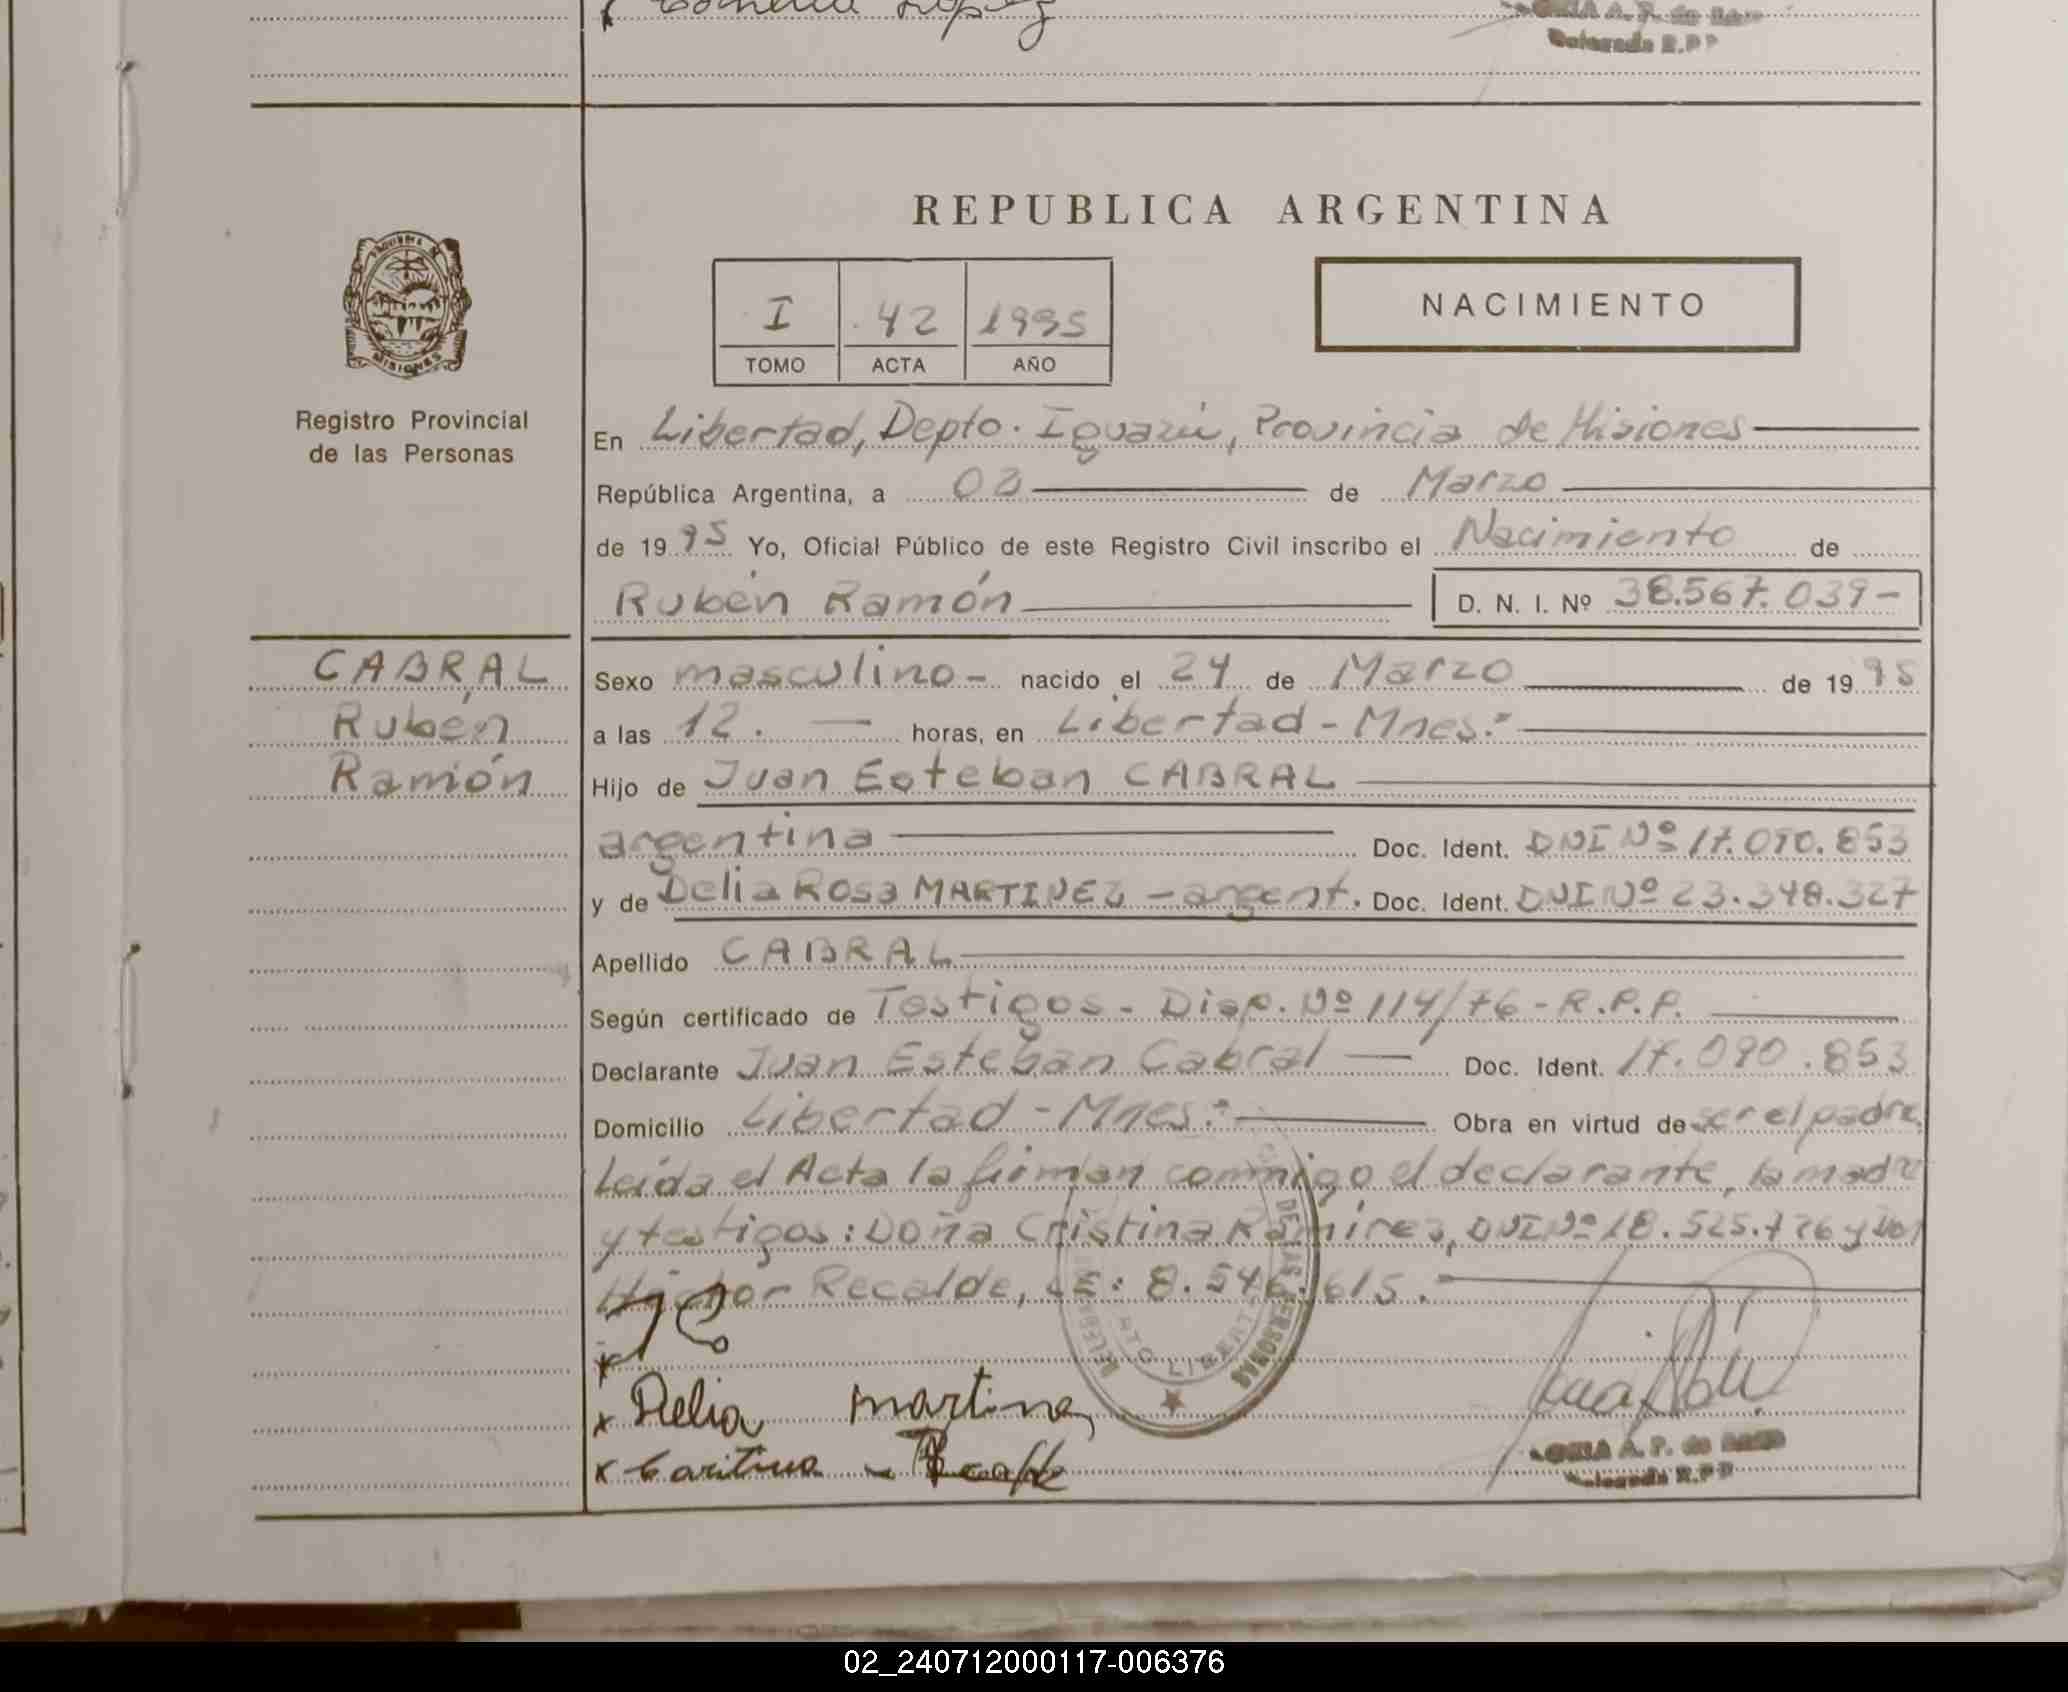 REPUBLICA ARGENTINA
I 42 1995
TOMO ACTA AÑO
NACIMIENTO
MISIONES
Registro Provincial
de las Personas
En Libertad, Depto. Iguazú, Provincia de Misiones
República Argentina, a 03 de Marzo
de 1995 Yo, Oficial Público de este Registro Civil inscribo el Nacimiento de
Rubén Ramón D. N. I. Nº 38.567.039-
CABRAL
Rubén
Ramón
Sexo masculino- nacido el 24 de Marzo de 1995
a las 12. horas, en Libertad - Mnes:
Hijo de Juan Esteban CABRAL
argentina Doc. Ident. DNI Nº 17.090.853
y de Delia Rosa MARTINEZ - argent. Doc. Ident. DNI Nº 23.348.327
Apellido CABRAL
Según certificado de Testigos - Disp. Nº 114/76 - R.P.P.
Declarante Juan Esteban Cabral Doc. Ident. 17.090.853
Domicilio Libertad - Mnes: Obra en virtud de ser el padre.
Leída el Acta la firman conmigo el declarante, la madre
y testigos: Doña Cristina Ramirez, DNI Nº 18.525.776 y Don
Recalde, LE: 8.546.615.
Delia Martinez
A. P. de
Delegada R.P.P
02_240712000117-006376